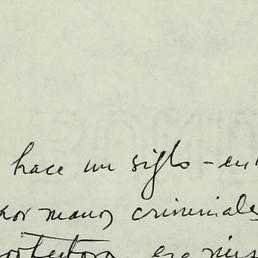 hace un siglo - en
por manos criminales
protectora, ese mis